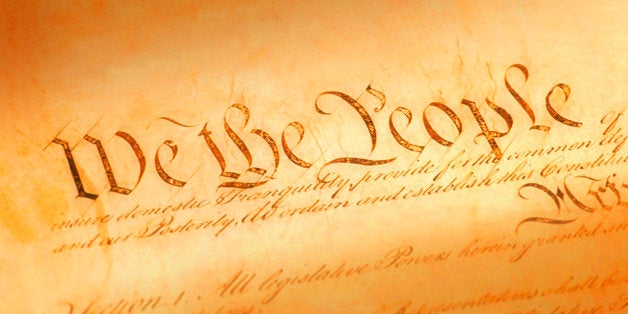 We the People
insure domestic Tranquility, provide for the common
and our Posterity, do ordain and establish this
Section 1. All legislative Powers herein granted
Representatives shall be